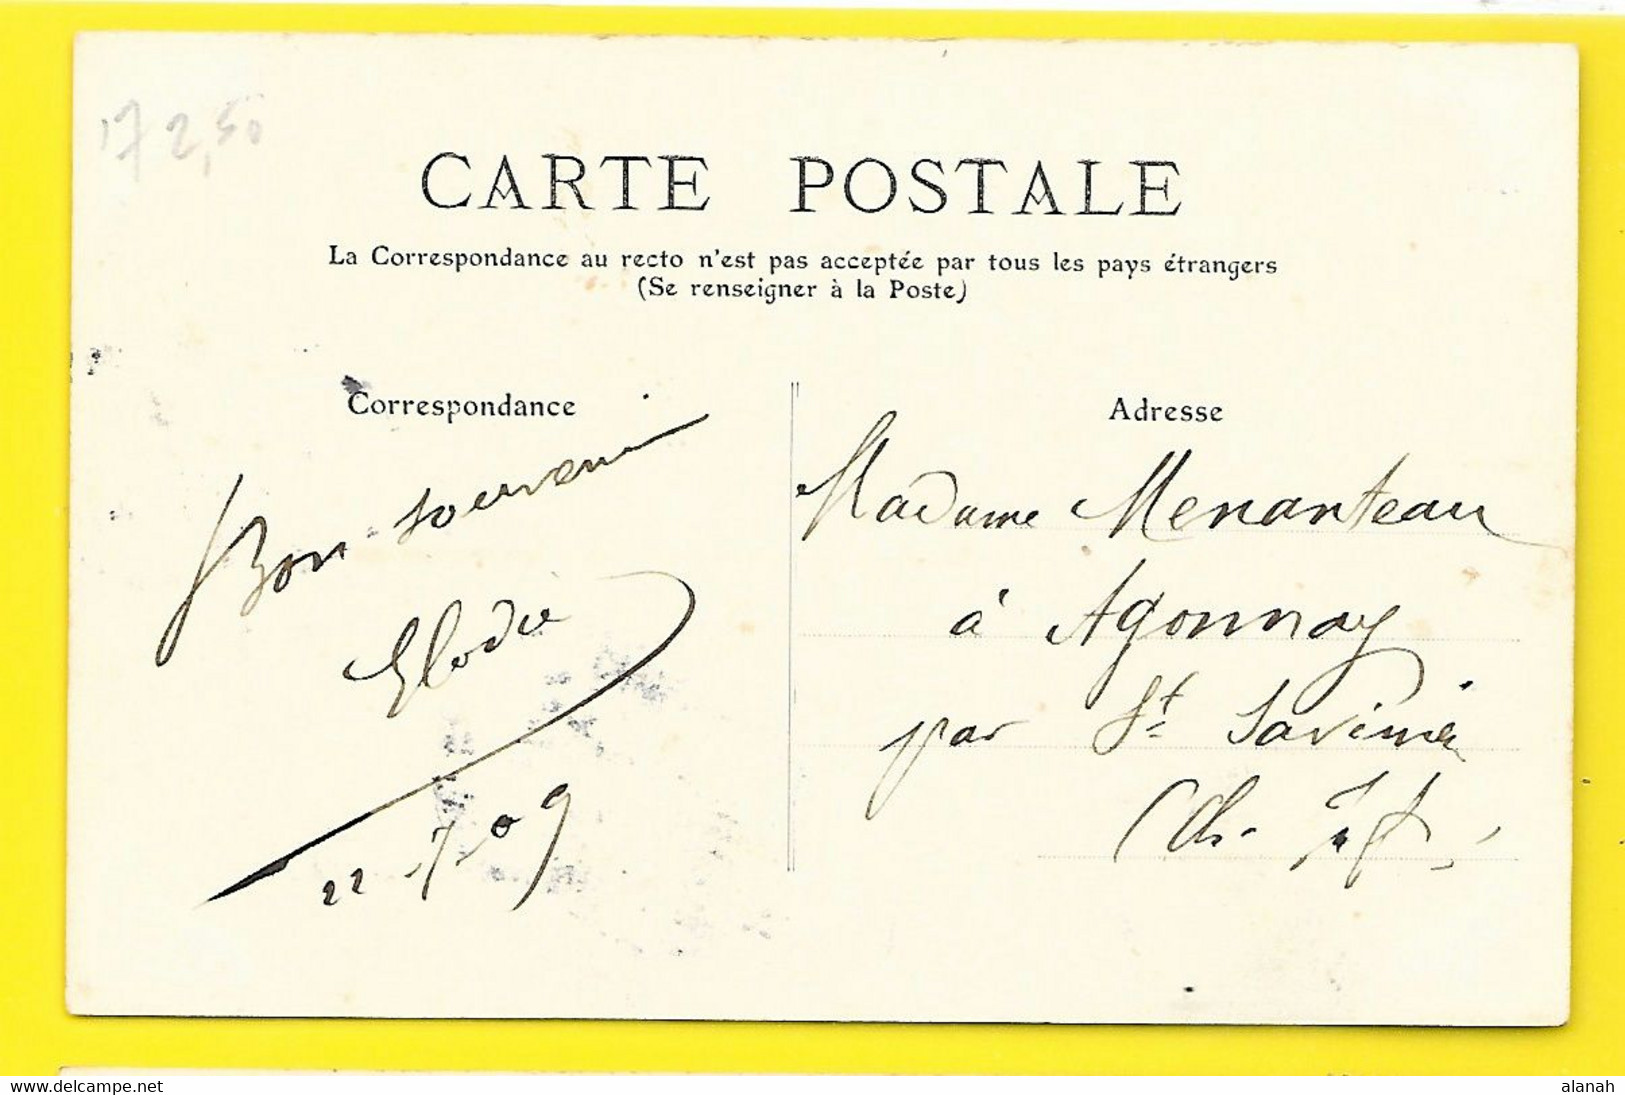 17 2,50
CARTE POSTALE
La Correspondance au recto n'est pas acceptée par tous les pays étrangers
(Se renseigner à la Poste)
Correspondance
Bon souvenir
Elodie
22-7-09
Adresse
Madame Menanteau
à Agonnay
par St Savinien
Ch. Inf.
www.delcampe.net
alanah